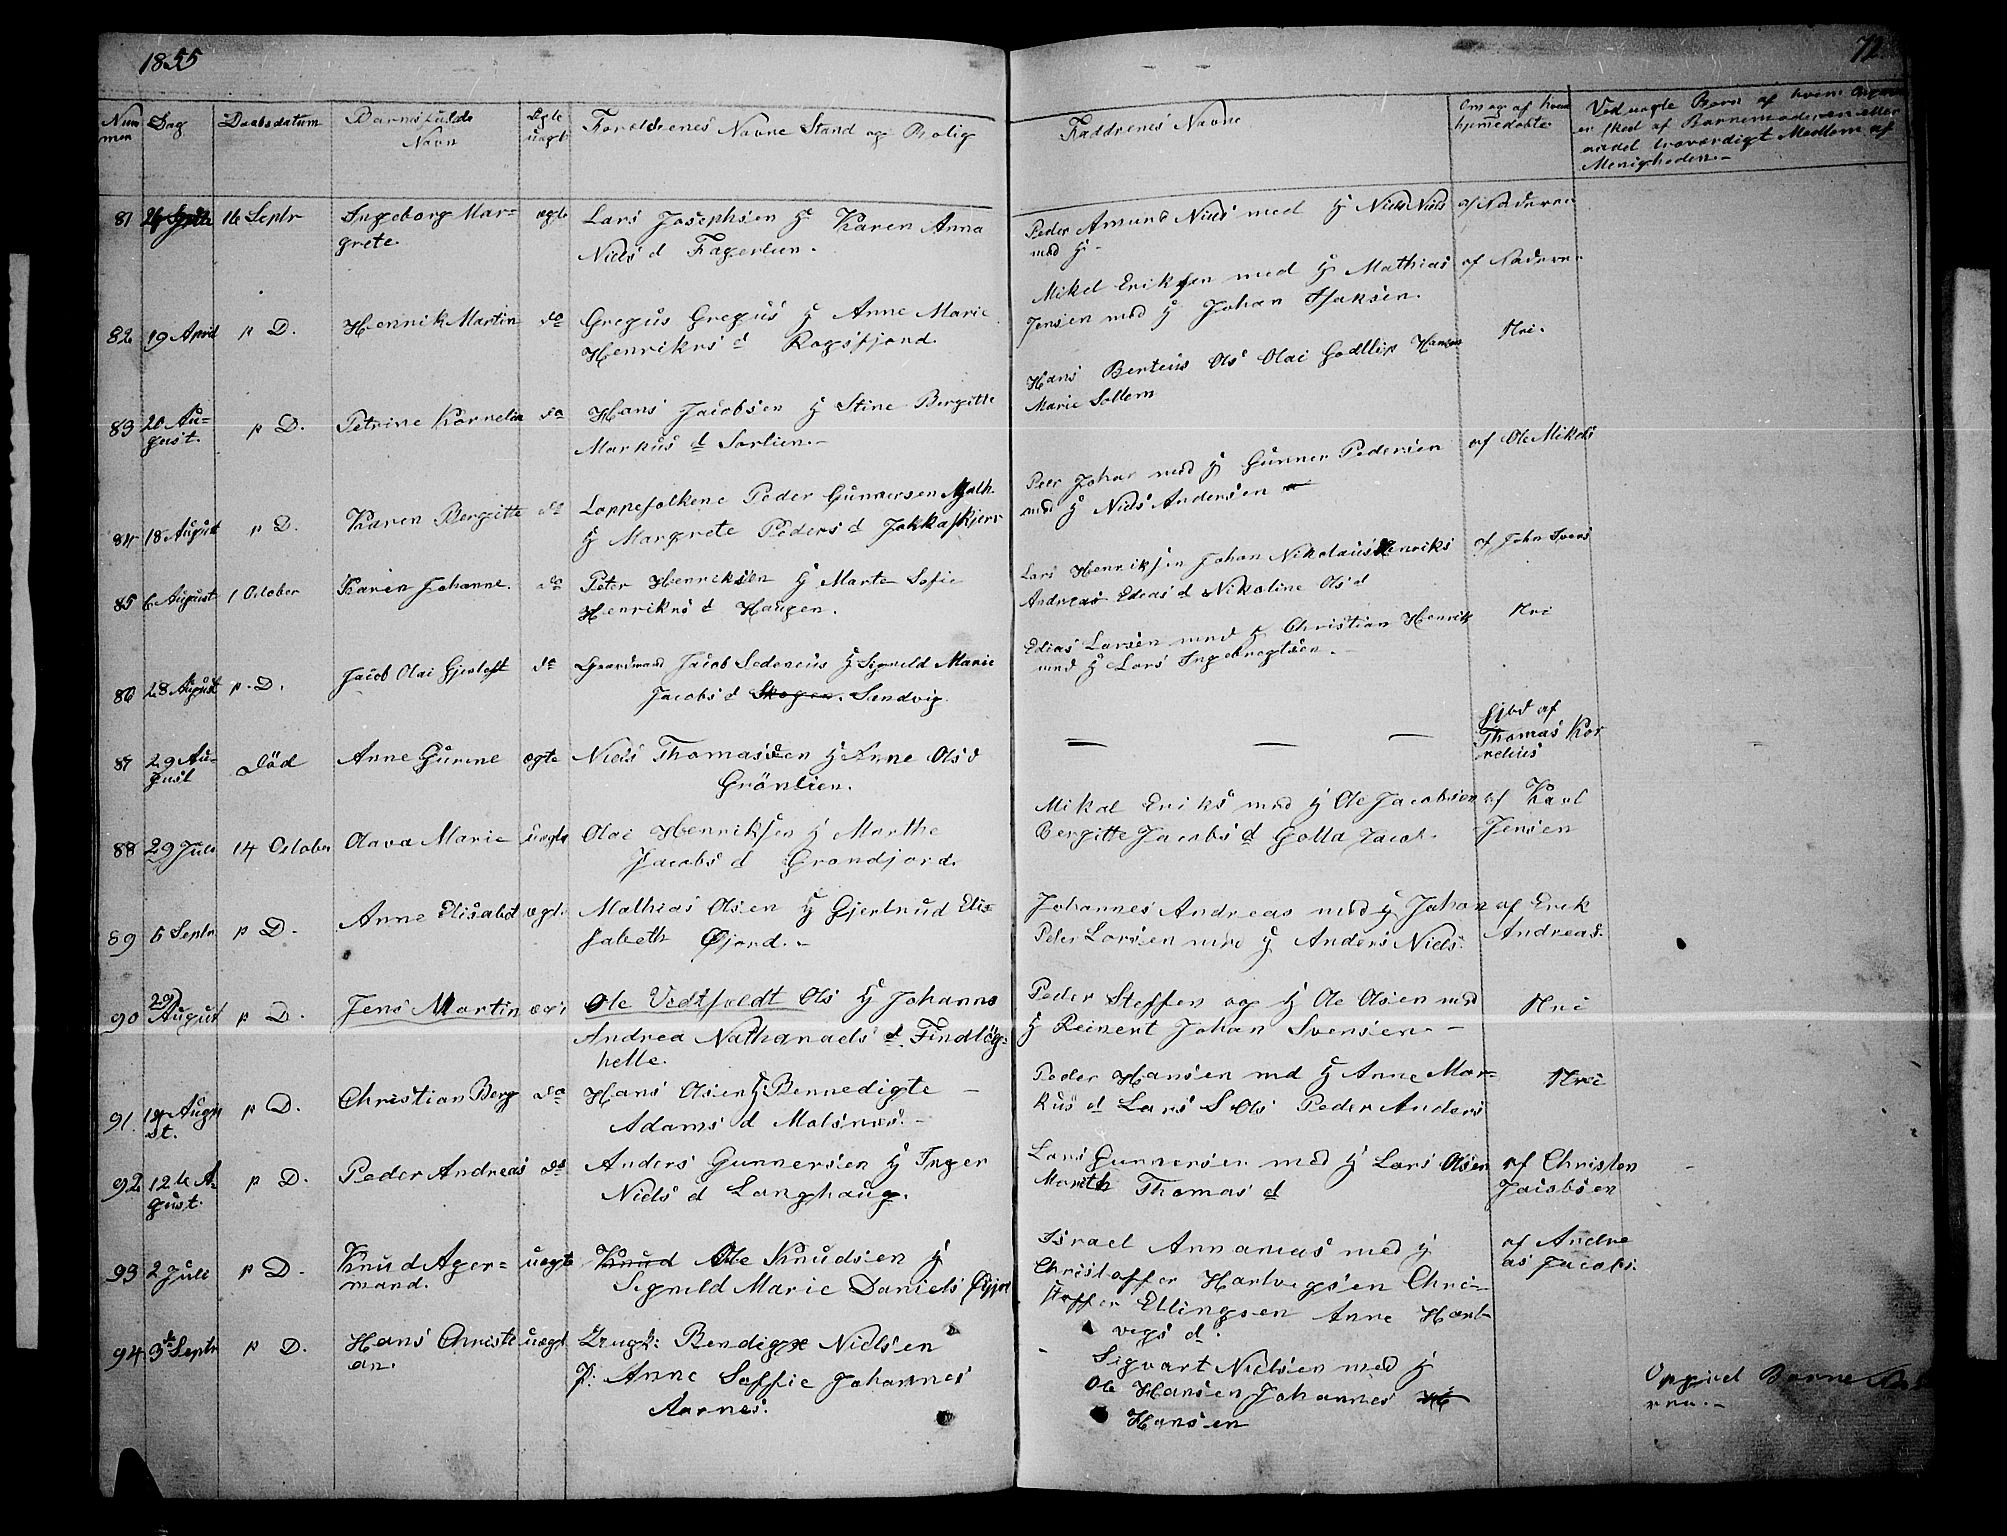 1855
72
Num
mer
Dag
Daabsdatum
Barnets fulde
Navn
Ægte
uægt
Forældrenes Navne Stand og Bolig
Faddrenes Navne
Om og af hvem
hjemmedøbte
Ved uægte Børn af hvem
er sked af Barnemoderen eller
andet troværdigt Medlem af
Menigheden.-
81 16 Septr Ingeborg Mar- ægte Lars Josephsen H Karen Anna
grete. Niels d Fagerlien.
Peder Amund Niels med H Niels Niels af Naderen
med H-
82 19 April p D. Henrik Martin do Gregus Gregus H Anne Marie
Henriks d Rogsfjord.
Mikel Eriksen med H Mathias af Naderen
Jensen med H Johan Isaksen.
83 20 Au- p D. Petrine Kornelia do Hans Jacobsen H Stine Bergitte
gust. Markus d Sørlien.-
Hans Berteus Ols Olai Godtlip Hansen Nei
Marie Sollem
84 18 August p D. Karen Bergitte do Lappefolkene Peder Gunnersen Math
H Margrete Peders d Jokkaskjerr
Peer Johan med H Gunner Pedersen af Ole Mikels
med H Niels Andersen
85 6 August 1 October Karen Johanne. do Peter Henriksen H Marte Sofie
Henriks d Haugen.
Lars Henriksen Johan Nikolaus Henriks af John Svens
Andreas Edias d Nikoline Ols d
86 28 August p. D. Jacob Olai Gjerløft do Gaardmand Jacob Sedeneus H Signeld Marie
Jacobs d Skogen. Sandvig.
Edias Larsen med H Christian Henrik Nei
med H Lars Ingebregtsen.-
87 29 Au- Død Anne Gurine ægte Niels Thomassen H Anne Ols d
gust Grønlien.
— — — hjbd af
Thomas Kor
nelius
88 29 Juli 14 October Olava Marie uægte Olai Henriksen H Marthe
Jacobs d Grandjord.
Mikal Eriks med H Ole Jacobsen af Karl
Bergitte Jacobs d Golla Jacob. Jensen
89 6 Septr p D. Anne Elisabet ægte Mathias Olsen H Gjertrud Eli-
sabeth Øjord.-
Johannes Andreas med H Johan af Erik
Peder Larsen med H Anders Niels. Andreas.
90 29 August p D. Jens Martin ægte Ole Vedtfeldt Ols H Johanna
Andrea Nathanaels d. Findløg-
helle.
Peder Steffen og H Ole Olsen med Nei
H Reinert Johan Svensen.-
91. 14 Augu p D. Christian Berg do Hans Olsen H Bennedigte -
st. Adams d Molsnæs.-
Peder Hansen md H Anne Mar- Nei
kus d Lars S Ols Peder Anders
92 12te A- p D. Peder Andreas do Anders Gunnersen H Inger
gust. Niels d Langhaug.
Lars Gunnersen med H Lars Olsen af Christen
Marith Thomas d Jacobsen
93 2 Juli p D. Knud Ager- uægte Knud Ole Knudsen H
mand. Signeld Marie Daniels Øyjord
Israel Annanias med H af Andre
Christoffer Hartvigsen Chri- as Jacobs.
stoffer Ellingsen Anne Hart-
vigs d.
94 3 Septr p D. Hans Christi uægt Ungk: Bendigx Nielsen
an. P: Anne Soffie Johannes
Aarnes.
Sigvart Nielsen med H
Ole Hansen Johannes
Hansen
Opgivet Barne